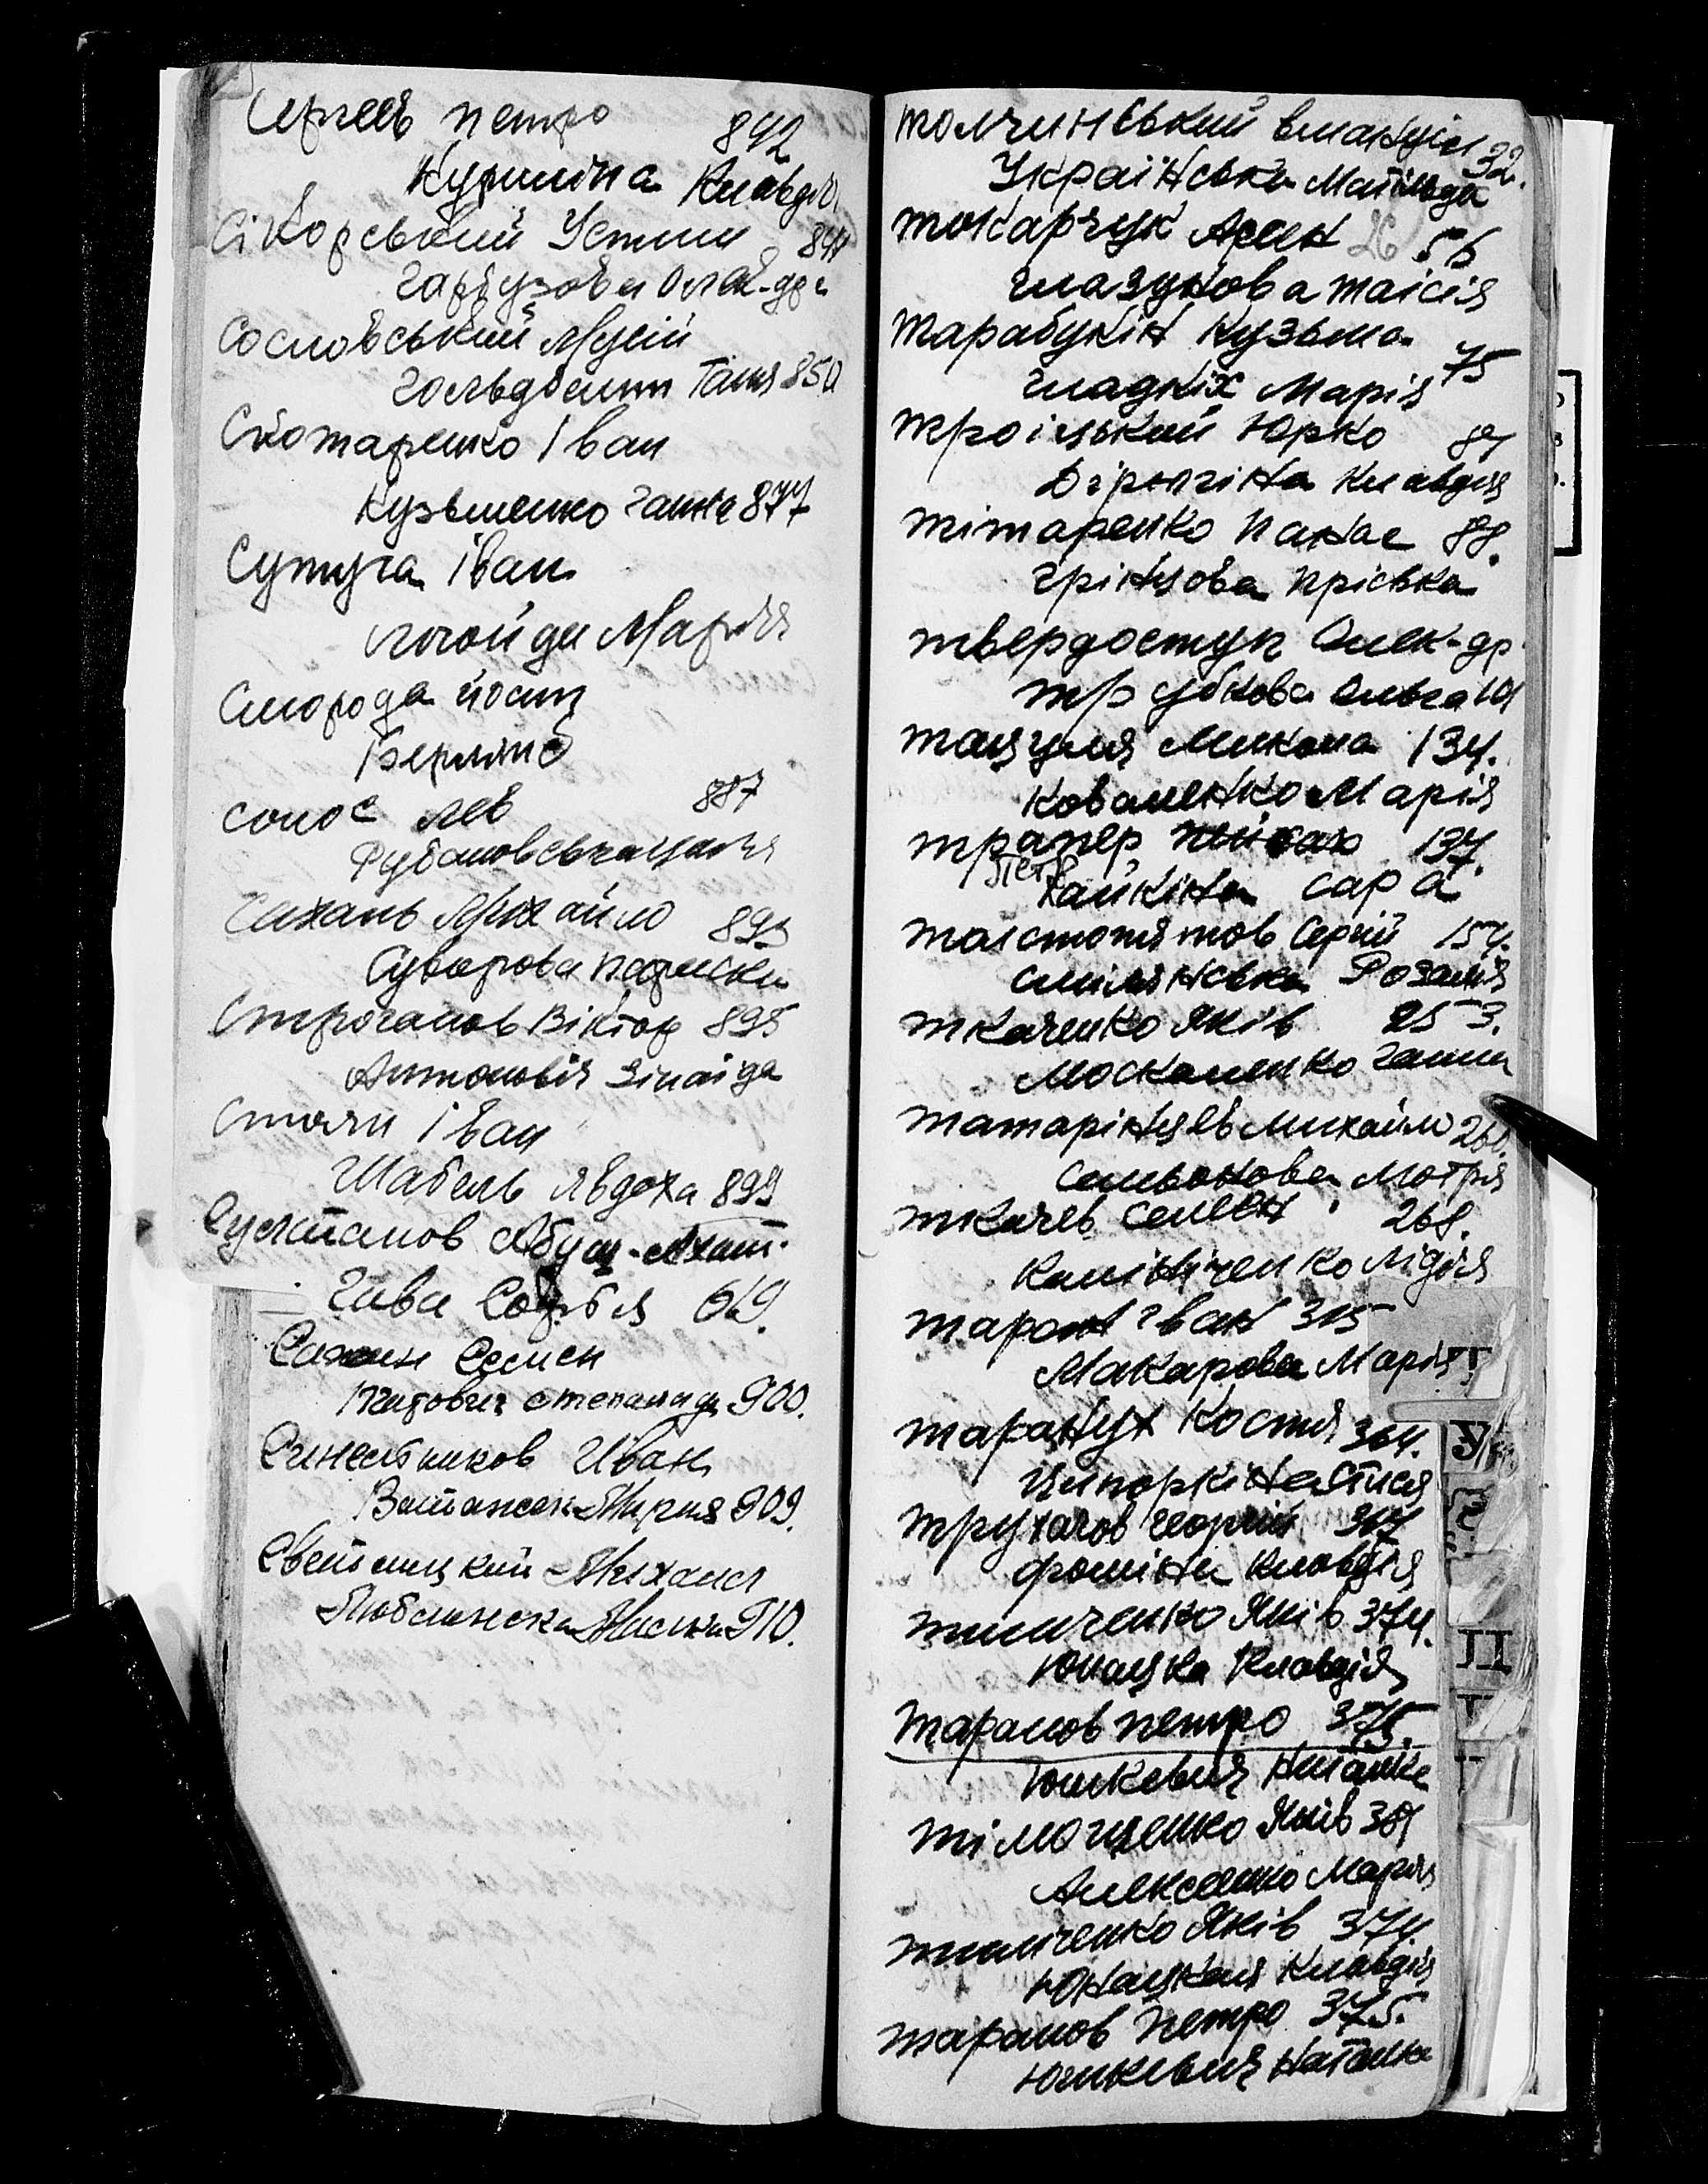 Сергеев петро 842
Куршіна Клавдія
Сікорський Устим 844
Гарбузова Олек-др
Сословський Мусій
Гольдбемт Таня 850
Скотаренко Іван
Кузьменко Ганна 877
Сутуга Іван
Марія
Сморода йосип
Берлянд
Солос Лев 887
Рубановська
Сахань Михайло 893
Суворова параска
Строганов Віктор 895
Антоновія Зінаіда
Столяр Іван
Шабель Явдоха 899
Султанов
Гава Софія 619.
Семен
Степанида 900.
Синельников Иван
Мирия 909.
Светлицкий Михаил
Люблинска 910.
толчинський
Українська Матільда 32.
токарчук Арсен 26 56
глазунова таісія
тарабукін Кузьма 75
гладкіх Марія
троіцький Юрко 87
Клавдія
тітаренко панас 88.
грінцова пріська
твердоступ Олек-др
трубкова Ольга 101
тацуля Микола 134.
коваленко Марія
трапер 137.
Петр
Хайкіна сара
толстопятов Сергій 154.
смілянська Розалія
ткаченко Яків 253.
москаленко ганна
татарінцев михайло 260.
семьонова Мотря
ткачев семен 268.
калініченко лідія
таран іван 315
Макарова Марія
таранух Костя 364.
Ципоркіна
трухачов георгій 367
фоміна Клавдія
тимченко Яків 374.
Юнацка Клавдія
таранов петро 375.
Юшкевич Наталка
тімощенко Яків 381
Алексеенко Марія
тимченко Яків 374.
Юнацкая Клавдія
таранов петро 375.
Юшкевич Наталка